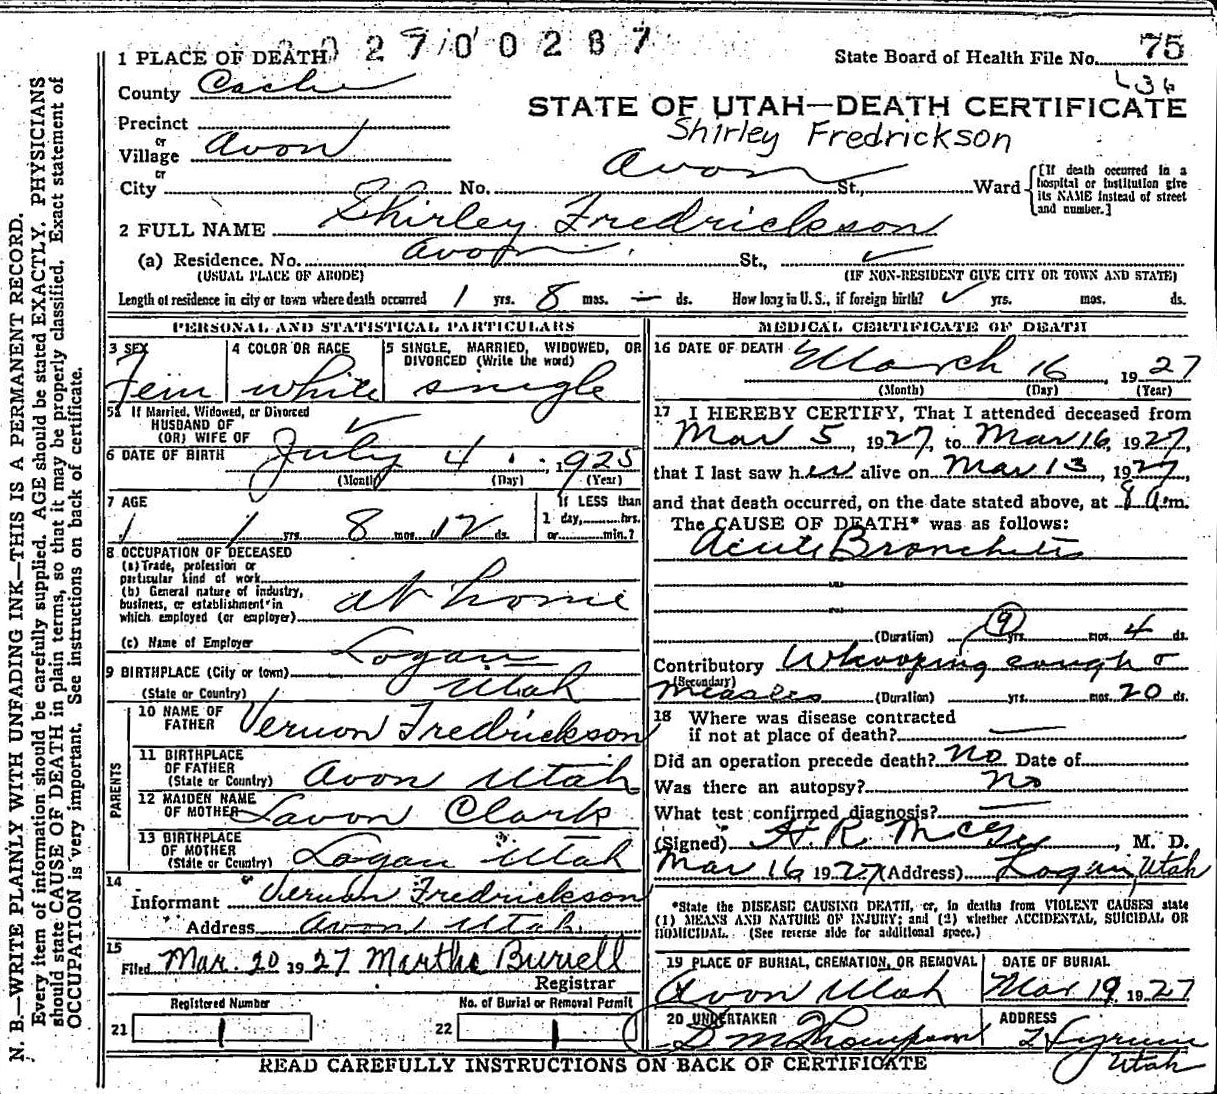 2700287
1 PLACE OF DEATH
State Board of Health File No. 75
County Cache
STATE OF UTAH—DEATH CERTIFICATE
Precinct
Shirley Fredrickson
or
Village Avon
or
Avon
City No. St., Ward
[If death occurred in a hospital or institution give its NAME instead of street and number.]
2 FULL NAME Shirley Fredrickson
(a) Residence. No. Avon St.,
(USUAL PLACE OF ABODE) (IF NON-RESIDENT GIVE CITY OR TOWN AND STATE)
Length of residence in city or town where death occurred 1 yrs. 8 mos. — ds. How long in U. S., if foreign birth? ✓ yrs. mos. ds.
PERSONAL AND STATISTICAL PARTICULARS
3 SEX 4 COLOR OR RACE 5 SINGLE, MARRIED, WIDOWED, OR
DIVORCED (Write the word)
Fem white single
5a If Married, Widowed, or Divorced
HUSBAND OF
(OR) WIFE OF
6 DATE OF BIRTH July 4, 1925
(Month) (Day) (Year)
7 AGE If LESS than
1 1 yrs. 8 mos. 12 ds. 1 day, hrs.
or min.?
8 OCCUPATION OF DECEASED
(a) Trade, profession or
particular kind of work
(b) General nature of industry,
business, or establishment in
which employed (or employer) at home
(c) Name of Employer
9 BIRTHPLACE (City or town) Logan
(State or Country) Utah
PARENTS
10 NAME OF
FATHER Vernon Fredrickson
11 BIRTHPLACE
OF FATHER
(State or Country) Avon Utah
12 MAIDEN NAME
OF MOTHER Lavon Clark
13 BIRTHPLACE
OF MOTHER
(State or Country) Logan Utah
14
Informant Vernon Fredrickson
Address Avon Utah
15
Filed Mar. 20 1927 Martha Burrell
Registrar
Registered Number No. of Burial or Removal Permit
21 22
MEDICAL CERTIFICATE OF DEATH
16 DATE OF DEATH March 16, 1927
(Month) (Day) (Year)
17 I HEREBY CERTIFY, That I attended deceased from
Mar 5, 1927, to Mar 16, 1927,
that I last saw her alive on Mar 13, 1927
and that death occurred, on the date stated above, at 8 a.m.
The CAUSE OF DEATH* was as follows:
Acute Bronchitis
(Duration) yrs. mos. 4 ds.
Contributory Whooping cough &
(Secondary)
measles (Duration) yrs. mos. 20 ds.
18 Where was disease contracted
if not at place of death? —
Did an operation precede death? No Date of
Was there an autopsy? no
What test confirmed diagnosis? —
(Signed) H. R. McGee, M. D.
Mar 16 1927 (Address) Logan, Utah
*State the DISEASE CAUSING DEATH, or, in deaths from VIOLENT CAUSES state
(1) MEANS AND NATURE OF INJURY; and (2) whether ACCIDENTAL, SUICIDAL OR
HOMICIDAL. (See reverse side for additional space.)
19 PLACE OF BURIAL, CREMATION, OR REMOVAL DATE OF BURIAL
Avon Utah Mar 19, 1927
20 UNDERTAKER ADDRESS
Thompson Hyrum
Utah
READ CAREFULLY INSTRUCTIONS ON BACK OF CERTIFICATE
N. B.—WRITE PLAINLY WITH UNFADING INK—THIS IS A PERMANENT RECORD.
Every item of information should be carefully supplied. AGE should be stated EXACTLY. PHYSICIANS
should state CAUSE OF DEATH in plain terms, so that it may be properly classified. Exact statement of
OCCUPATION is very important. See instructions on back of certificate.